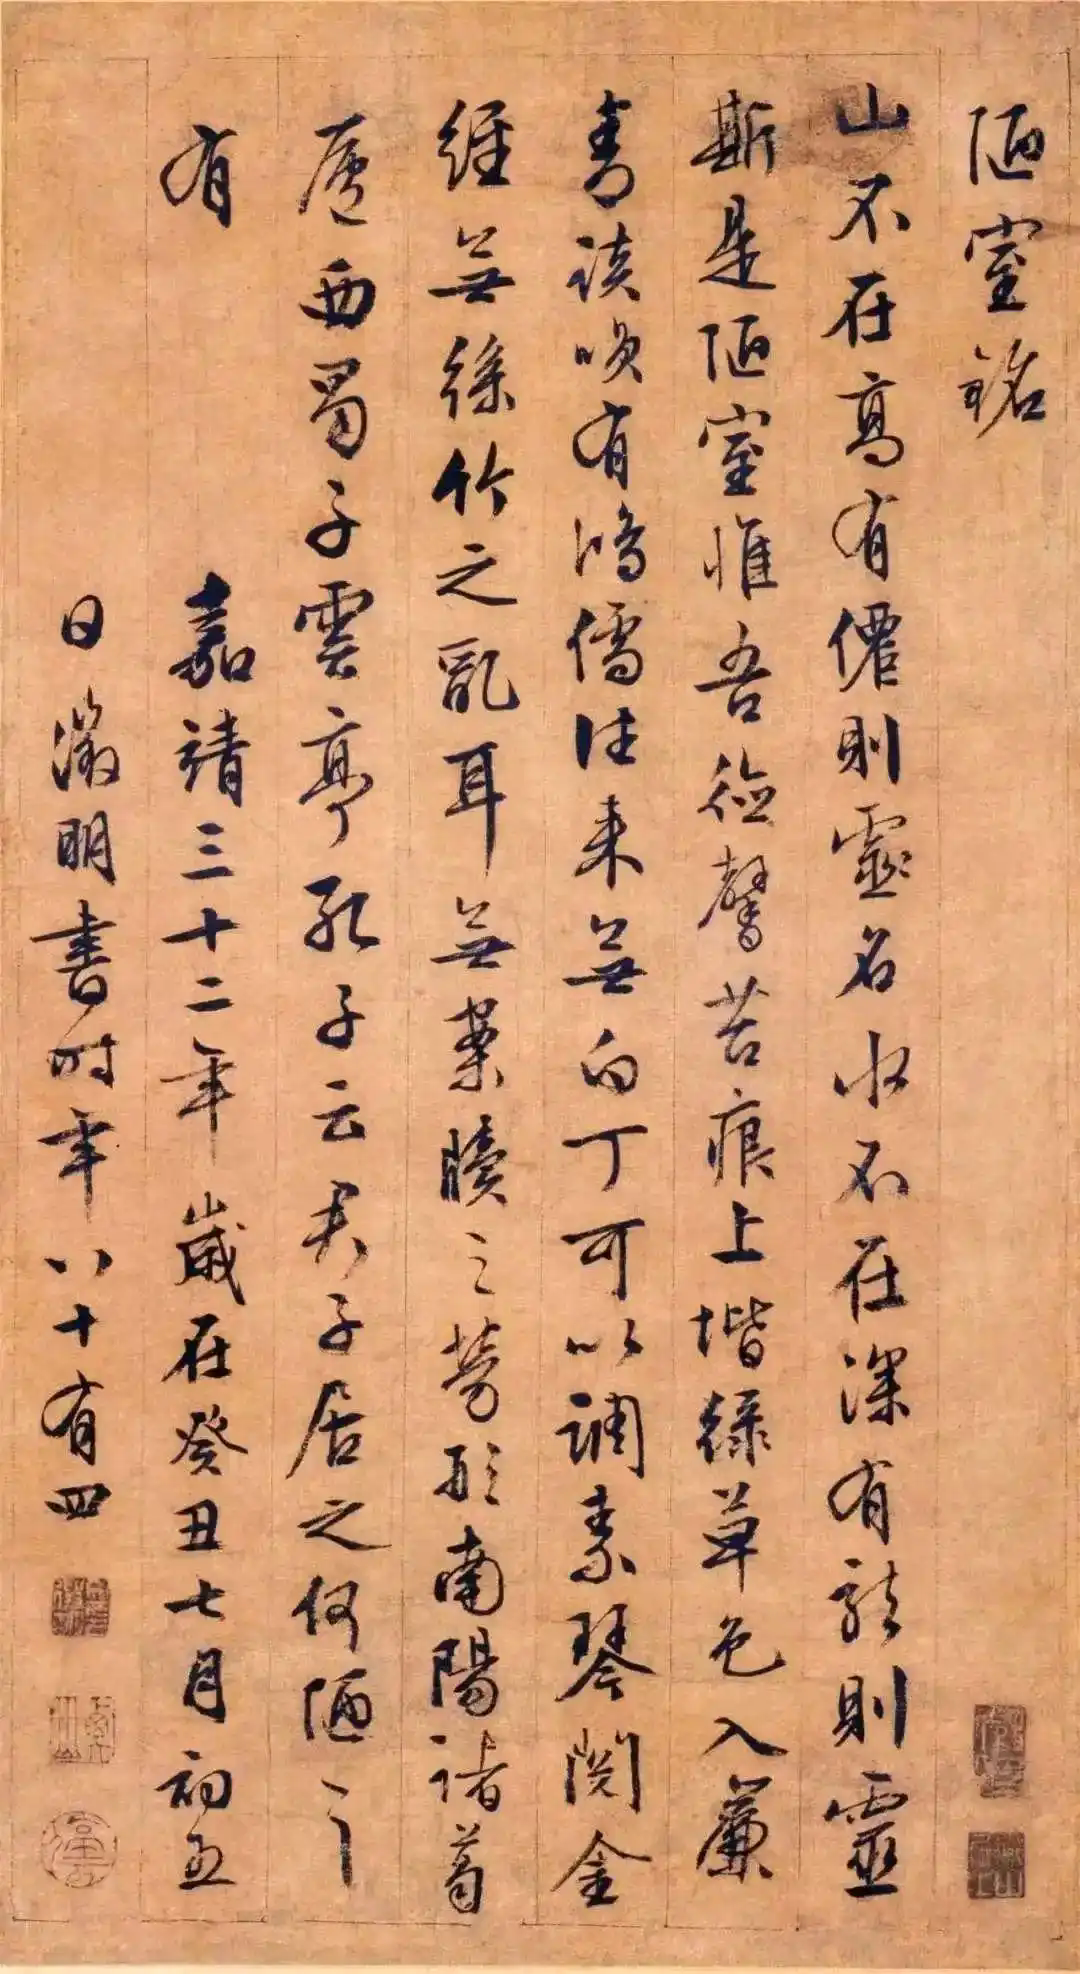 陋室銘
山不在高有僊則靈名水不在深有龍則靈
斯是陋室惟吾德馨苔痕上堦綠草色入簾
青談咲有鴻儒往来無白丁可以調素琴閱金
經無絲竹之亂耳無案牘之勞形南陽諸葛
廬西蜀子雲亭孔子云君子居之何陋之
有 嘉靖三十二年歲在癸丑七月初五
日徵明書時年八十有四